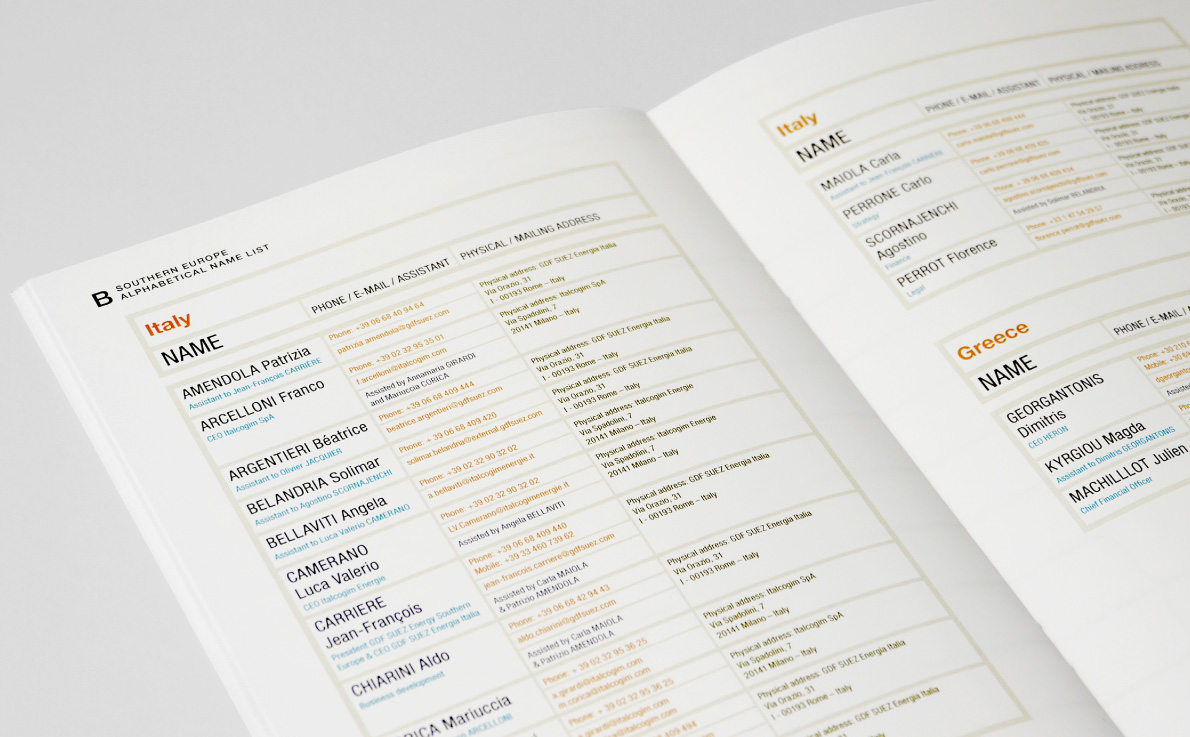 B SOUTHERN EUROPE
ALPHABETICAL NAME LIST
Italy
NAME
PHONE / E-MAIL / ASSISTANT
PHYSICAL / MAILING ADDRESS
AMENDOLA Patrizia
Assistant to Jean-François CARRIÈRE
Phone: +39 06 68 40 94 64
patrizia.amendola@gdfsuez.com
Physical address: GDF SUEZ Energia Italia
Via Orazio, 31
I - 00193 Rome – Italy
ARCELLONI Franco
CEO Italcogim SpA
Phone: +39 02 32 95 35 01
f.arcelloni@italcogim.com
Assisted by Annamaria GIRARDI
and Mariuccia CORICA
Physical address: Italcogim SpA
Via Spadolini, 7
20141 Milano – Italy
ARGENTIERI Béatrice
Assistant to Olivier JACQUIER
Phone: +39 06 68 409 444
beatrice.argentieri@gdfsuez.com
Physical address: GDF SUEZ Energia Italia
Via Orazio, 31
I - 00193 Rome – Italy
BELANDRIA Solimar
Assistant to Agostino SCORNAJENCHI
Phone: + 39 06 68 409 420
solimar.belandria@external.gdfsuez.com
Physical address: GDF SUEZ Energia Italia
Via Orazio, 31
I - 00193 Rome – Italy
BELLAVITI Angela
Assistant to Luca Valerio CAMERANO
Phone: +39 02 32 90 32 02
a.bellaviti@italcogimenergie.it
Physical address: Italcogim Energie
Via Spadolini, 7
20141 Milano – Italy
CAMERANO
Luca Valerio
CEO Italcogim Energie
Phone: +39 02 32 90 32 02
LV.Camerano@italcogimenergie.it
Assisted by Angela BELLAVITI
Physical address: Italcogim Energie
Via Spadolini, 7
20141 Milano – Italy
CARRIERE
Jean-François
President GDF SUEZ Energy Southern
Europe & CEO GDF SUEZ Energia Italia
Phone: +39 06 68 409 440
Mobile: +39 33 460 739 62
jean-francois.carriere@gdfsuez.com
Assisted by Carla MAIOLA
& Patrizio AMENDOLA
Physical address: GDF SUEZ Energia Italia
Via Orazio, 31
I - 00193 Rome – Italy
CHIARINI Aldo
Business development
Phone: +39 06 68 42 94 43
aldo.chiarini@gdfsuez.com
Assisted by Carla MAIOLA
& Patrizio AMENDOLA
Physical address: GDF SUEZ Energia Italia
Via Orazio, 31
I - 00193 Rome – Italy
RICA Mariuccia
ARCELLONI
Phone: + 39 02 32 95 36 25
a.girardi@italcogim.com
m.corica@italcogim.com
Physical address: Italcogim SpA
Via Spadolini, 7
20141 Milano – Italy
Phone: + 39 02 32 95 36 25
a.girardi@italcogim.com
m.corica@italcogim.com
Physical address: Italcogim SpA
Via Spadolini, 7
20141 Milano – Italy
409 494
Physical address: GDF SUEZ Energia Italia
Via Orazio, 31
I - 00193 Rome – Italy
Physical address: GDF SUEZ Energia Italia
Italy
NAME
PHONE / E-MAIL / ASSISTANT
PHYSICAL / MAILING ADDRESS
MAIOLA Carla
Assistant to Jean-François CARRIERE
Physical address: GDF SUEZ Energia Italia
Via Orazio, 31
I - 00193 Rome – Italy
PERRONE Carlo
Strategy
SCORNAJENCHI
Agostino
Finance
Assisted by Solimar BELANDRIA
PERROT Florence
Legal
Phone: +33 1 47 54 29 57
florence.perrot@gdfsuez.com
Greece
NAME
PHONE / E-MAIL / A
GEORGANTONIS
Dimitris
CEO HERON
KYRGIOU Magda
Assistant to Dimitris GEORGANTONIS
MACHILLLOT Julien
Chief Financial Officer